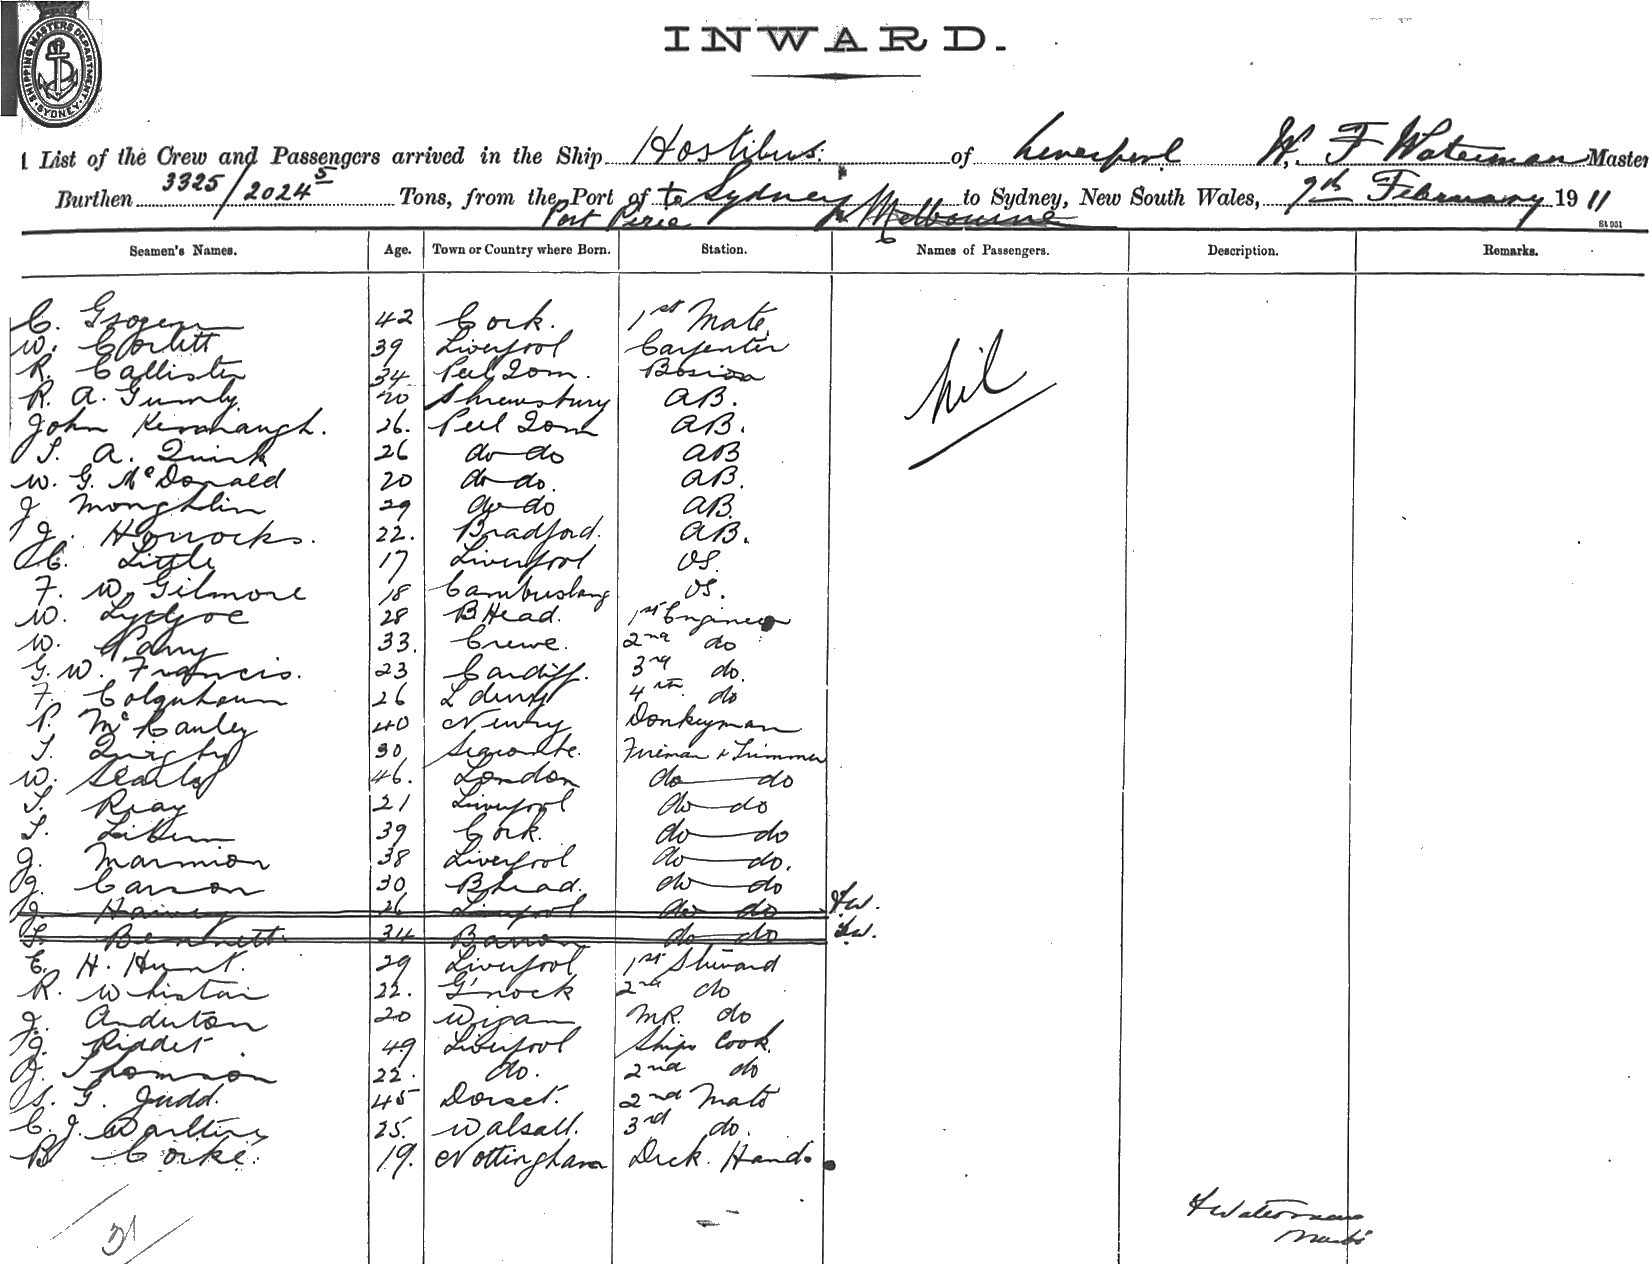 SHIPPING MASTERS DEPARTMENT. SYDNEY
INWARD.
List of the Crew and Passengers arrived in the Ship Hostilius. of Liverpool W. F Waterman Master
Burthen 3325/2024 5 Tons, from the Port of to Sydney to Sydney, New South Wales, 9th February 1911
Port Pirie Melbourne
St 951
Seamen's Names. Age. Town or Country where Born. Station. Names of Passengers. Description. Remarks.
C. 42 Cork. 1st Mate
W. Corlett 39 Liverpool Carpenter
R. Callister 34 Peel Iom. Bosun
R. A. Gumly 20 Shrewsbury AB.
John Kavanaugh. 26. Peel Iom AB.
nil
T. A. Quirk 26 do do AB
W. G. McDonald 20 do do. AB.
J. Moughlin 29 do do AB.
J. Horrocks. 22. Bradford. AB.
C. Little 17 Liverpool OS.
F. W. Gilmore 18 Cambuslang OS.
W. Lydgoe 28 BHead. 1st Engineer
W. Parry 33. Crewe. 2nd do
G. W. Francis. 23 Cardiff. 3rd do.
F. Colquhoun 26 4th do
P. McCauley 40 Newry Donkeyman
T. Quigley 30 Seacombe. Fireman & Trimmer
W. 46. London do do
T. Reay 21 Liverpool do do
T. 39 Cork. do do
J. Marmion 38 Liverpool do do.
J. Carson 30 BHead. do do
J. Harvey 26 Liverpool do do FW.
T. Bennett. 34 Barrow do do FW.
E. H. Hunt. 29 Liverpool 1st Steward
R. Whistan 22. G'nock 2nd do
J. Anderton 20 Wigan MR. do
J. Riddet 49 Liverpool Ships Cook.
J. Thomson 22. do. 2nd do
S. G. Judd. 45 Dorset. 2nd Mate
C. J. 25. Walsall. 3rd do.
B Corke. 19. Nottingham Deck. Hand.
FWaterman
Master
31